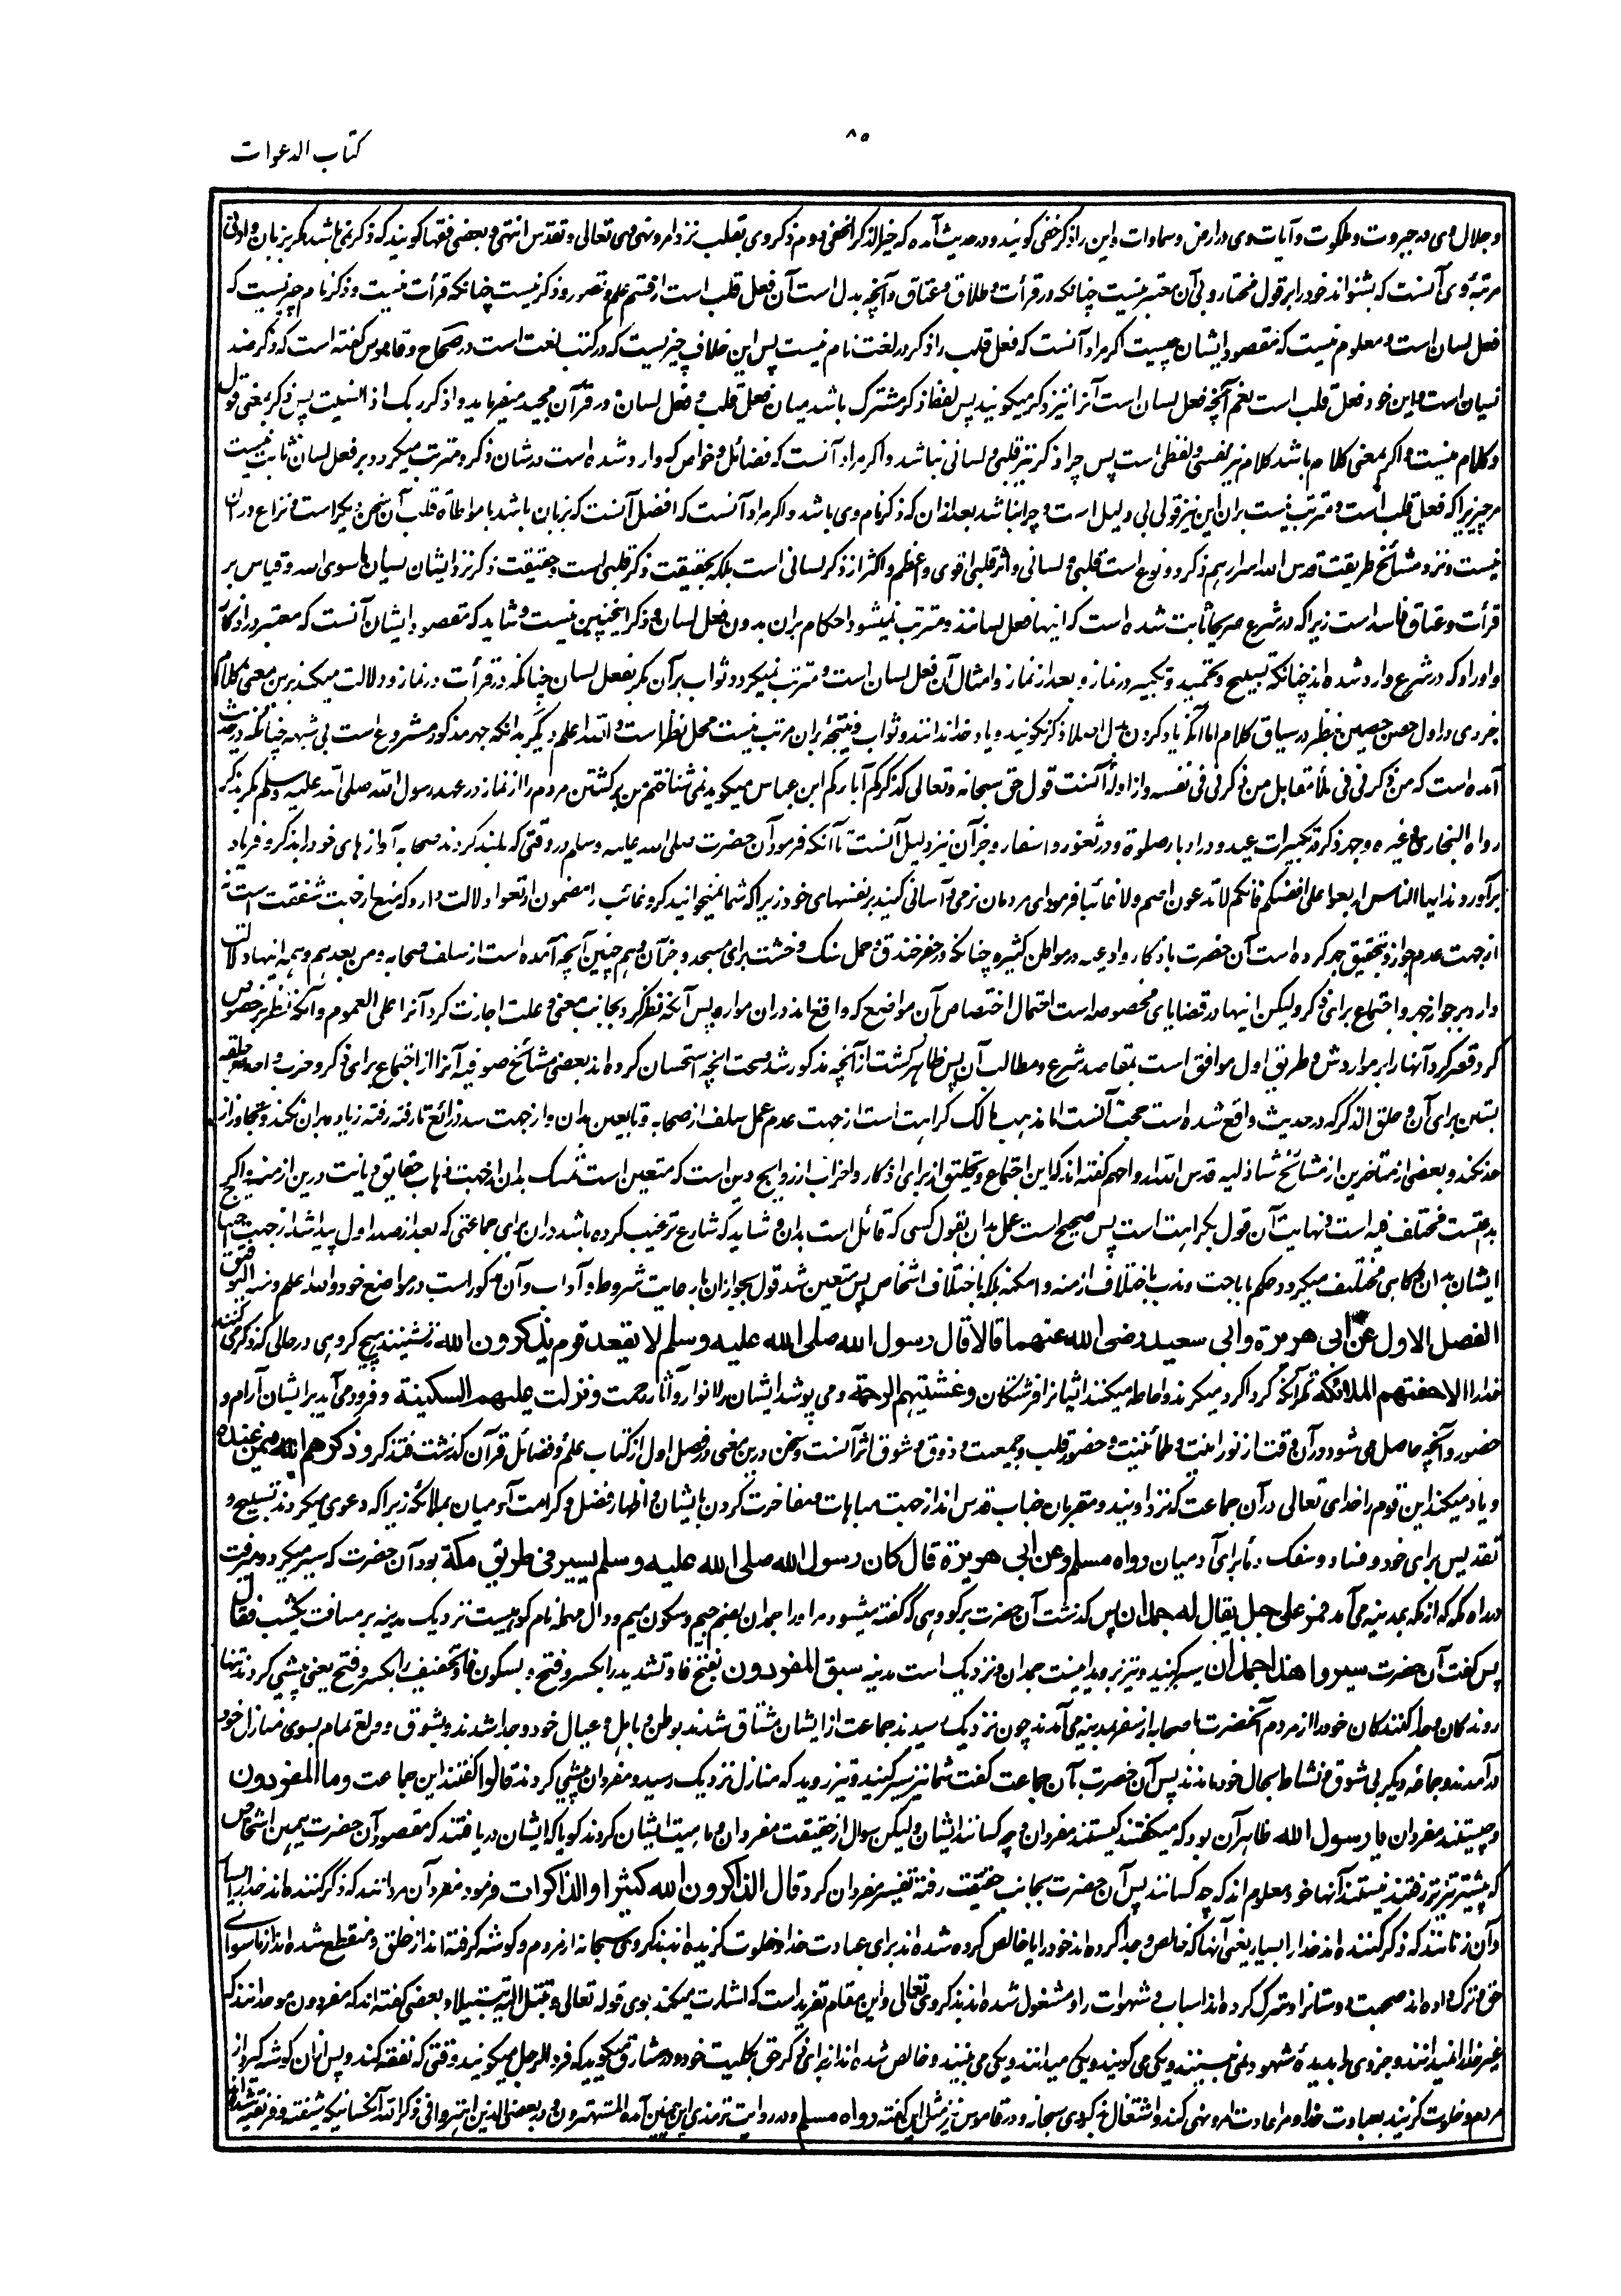 کتاب الدعوات
۸۵
و جلال وی در جبروت و ملکوت و آیات وی در ارض و سماوات و این را ذکر خفی گویند و در حدیث آمده که خیر الذکر الخفی دوم ذکر وی بقلب نزد امر و نهی وی تعالی و تقدس انتهی و بعضی فقها گویند که ذکر نمی باشد مگر بزبان و ادنی
مرتبهٔ وی آنست که بشنواند خود را بر قول مختار و بی آن معتبر نیست چنانکه در قرأت و طلاق و عتاق و آنچه بدل است آن فعل قلب است از قسم علم و تصور و ذکر نیست چنانکه قرأت نیست و ذکر نام چیزیست که
فعل لسان است و معلوم نیست که مقصود ایشان چیست اگر مراد آنست که فعل قلب را ذکر در لغت نام نیست پس این خلاف چیزیست که در کتب لغت است در صحاح و قاموس گفته است که ذکر ضد
نسیان است و این خود فعل قلب است نعم آنچه فعل لسان است آنرا نیز ذکر میگویند پس لفظ ذکر مشترک باشد میان فعل قلب و فعل لسان و در قرآن مجید میفرماید و اذکر ربک اذا نسیت پس ذکر بمعنی قول
و کلام نیست و اگر بمعنی کلام باشد کلام نیز نفسی و لفظی است پس چرا ذکر نیز قلبی و لسانی نباشد و اگر مراد آنست که فضائل و خواص که وارد شده است در شان ذکر و مترتب میگردد بر فعل لسان ثابت نیست
مر چیزیرا که فعل قلب است و مترتب نیست بران این نیز قولی بی دلیل است و چرا نباشد بعد ازان که ذکر نام وی باشد و اگر مراد آنست که افضل آنست که بزبان باشد با مواطاة قلب آن سخن دیگر است و نزاع در ان
نیست و نزد مشائخ طریقت قدس الله اسرارهم ذکر دو نوع است قلبی و لسانی و اثر قلبی اقوی و اعظم و اکثر از ذکر لسانی است بلکه بحقیقت ذکر قلبی است و حقیقت ذکر نزد ایشان نسیان ما سوی الله و قیاس بر
قرأت و عتاق فاسد است زیرا که در شرع صریحا ثابت شده است که اینها فعل لسانند و مترتب نمیشود احکام بران بدون فعل لسان و ذکر اینچنین نیست و شاید که مقصود ایشان آنست که معتبر در اذکار
و اوراد که در شرع وارد شده اند چنانکه تسبیح و تحمید و تکبیر در نماز و بعد از نماز و امثال آن فعل لسان است و مترتب نمیگردد ثواب بر آن مگر بفعل لسان چنانکه در قرأت در نماز و دلالت میکند برین معنی کلام
جزری در اول حصن حصین بنظر در سیاق کلام اما آنکه یاد کردن بدل اصلا ذکر نگویند و یاد خدا ندانند و ثواب و نتیجه بران مرتب نیست محل نظر است و الله اعلم دیگر بدانکه جهر مذکور مشروع است بی شبهه چنانکه در حدیث
آمده است که من ذکرنی فی ملأ مقابل من ذکرنی فی نفسه و از ادلهٔ آنست قول حق سبحانه و تعالی کذکرکم آباءکم ابن عباس میگوید نمی شناختم من برگشتن مردم را از نماز در عهد رسول الله صلی الله علیه وسلم مگر بذکر
رواه البخاری و غیره و جهر ذکر در تکبیرات عید و در ادبار صلوة و در ثغور و اسفار و جز آن نیز دلیل آنست تا آنکه فرمود آن حضرت صلی الله علیه وسلم در وقتی که بلند کردند صحابه آوازهای خود را بذکر و فریاد
برآوردند ایها الناس اربعوا علی انفسکم فانکم لا تدعون اصم و لا غائبا فرمود ای مردمان نرمی و آسانی کنید بر نفسهای خود زیرا که شما نمیخوانید کر و غائب را مضمون اربعوا دلالت دارد که منع از جهت شفقت است نه
از جهت عدم جواز و بتحقیق جهر کرده است آن حضرت باذکار و ادعیه در مواطن کثیره چنانکه در حفر خندق و حمل سنگ و خشت برای مسجد و جز آن و هم چنین آنچه آمده است از سلف صحابه و من بعدهم و همه اینها دلالت
دارد بر جواز جهر و اجتماع برای ذکر و لیکن اینها در قضایای مخصوصه است احتمال اختصاص بآن مواضع که واقع اند دران موارد پس آنکه نظر کرد بجانب معنی و علت اجازت کرد آنرا علی العموم و آنکه نظر بر خصوص
کرد قصر کرد آنها را بر مواردش و طریق اول موافق است بمقاصد شرع و مطالب آن پس ظاهر گشت از آنچه مذکور شد صحت آنچه استحسان کرده اند بعضی مشائخ صوفیه آنرا از اجتماع برای ذکر و حزب و حلقه
بستن برای آن و حلق الذکر که در حدیث واقع شده است حجت آنست اما مذهب مالک کراهت است از جهت عدم عمل سلف از صحابه و تابعین بدان و از جهت سد ذرائع تا رفته رفته زیاده بران نکند و تجاوز از
حد نکند و بعضی از متاخرین از مشائخ شاذلیه قدس الله ارواحهم گفته اند که این اجتماع و تحلیق از برای اذکار و احزاب از روایح دین است که متعین است تمسک بدان از جهت ذهاب حقایق دیانت درین ازمنه اگرچه
بدعتست مختلف فیه است و نهایت آن قول بکراهت است پس صحیح است عمل بدان بقول کسی که قائل است بدان و شاید که شارع ترغیب کرده باشد دران برای جماعتی که بعد از صدر اول پیدا شد از جهت
ایشان بدان و گاهی مختلف میگردد حکم باباحت و ندب باختلاف ازمنه و امکنه بلکه باختلاف اشخاص پس متعین شد قول بجواز ان با رعایت شروط و آداب و آن مذکور است در مواضع خود و الله اعلم و منه التوفیق
الفصل الاول عن ابی هریرة وابی سعید رضی الله عنهما قالا قال رسول الله صلی الله علیه وسلم لا یقعد قوم یذکرون الله ننشینند هیچ گروهی در حالی که ذکر می کنند
خدا را الا حفتهم الملائکة مگر آنکه گرداگرد میگیرند و احاطه میکنند ایشانرا فرشتگان وغشیتهم الرحمة و می پوشد ایشان را انوار و آثار رحمت ونزلت علیهم السکینة و فرود می آید بر ایشان آرام و
حضور و آنچه حاصل می شود در آن وقت از نورانیت و طمأنینت و حضور قلب و جمعیت و ذوق و شوق اثر آنست و سخن درین معنی در فصل اول از کتاب علم و فضائل قرآن گذشت فتذکر وذکرهم الله فیمن عنده
و یاد میکند این قوم را خدای تعالی در آن جماعت که نزد اویند و مقربان جناب قدس اند از جهت مباهات و مفاخرت کردن بایشان و اظهار فضل و کرامت آدمیان بملائکه زیرا که دعوی میکردند تسبیح و
تقدیس برای خود و فساد و سفک دما برای آدمیان رواه مسلم وعن ابی هریرة قال کان رسول الله صلی الله علیه وسلم یسیر فی طریق مکة بود آن حضرت که سیر میکرد و میرفت
در راه مکه که از مکه بمدینه می آمد فمر علی جبل یقال له جمدان پس گذشت آن حضرت بر کوهی که گفته میشود مر او را جمدان بضم جیم و سکون میم و دال مهمله نام کوهیست نزدیک مدینه بر مسافت یکشب فقال
پس گفت آن حضرت سیروا هذا جمدان سیر کنید و تیز بروید اینست جمدان و نزدیک است مدینه سبق المفردون بفتح فا و تشدید را بکسر و فتح و بسکون فا و تخفیف را بکسر و فتح یعنی پیشی کردند تنها
روندگان و جدا کنندگان خود را از مردم آنحضرت با صحابه از سفر بمدینه می آمدند چون نزدیک رسیدند جماعت از ایشان مشتاق شدند بوطن و باهل و عیال خود و جدا شدند و بشوق و ولع تمام بسوی منازل خود
درآمدند و جماعه دیگر بی شوق و نشاط بحال خود ماندند پس آن حضرت بآن جماعت گفت شما نیز سیر کنید و تیز روید که منازل نزدیک رسید و مفردان پیشی کردند قالوا گفتند این جماعت وما المفردون
و چیستند مفردان یا رسول الله ظاهر آن بود که میگفتند کیستند مفردان و چه کسانند ایشان و لیکن سوال از حقیقت مفردان و ماهیت ایشان کردند گویا که ایشان دریافتند که مقصود آن حضرت همین اشخاص
که پیشتر تیزتر رفتند نیستند آنها خود معلوم اند که چه کسانند پس آن حضرت بجانب حقیقت رفته تفسیر مفردان کرد قال الذاکرون الله کثیرا والذاکرات فرمود مفردان آن مردانند که ذکر کننده اند خدا را بسیار
و آن زنانند که ذکر کننده اند خدا را بسیار یعنی آنها که خالص و جدا کرده اند خود را یا خالص کرده شده اند برای عبادت خدا و خلوت گزیده اند بذکر وی سبحانه از مردم و گوشه گرفته اند از خلق و منقطع شده اند از ماسوای
حق و ترک داده اند صحبت دوستانرا و ترک کرده اند اسباب و شهوات را و مشغول شده اند بذکر وی تعالی و این مقام تفرید است که اشارت میکند بوی قوله تعالی و تبتل الیه تبتیلا و بعضی گفته اند که مفردون موحدانند که
غیر خدا را نمیدانند و جز وی را بدیدهٔ شهود نمی بینند و یکی می گویند و یکی میدانند و یکی می بینند و خالص شده اند از برای ذکر حق بکلیت خود و در مشارق میگوید که فرد الرجل میگویند وقتی که تفقه کند و پس ازان گوشه گیرد از
مردم و خلوت گزیند بعبادت خدا و مراعات امر و نهی کند و اشتغال بذکر وی سبحانه و در قاموس نیز مثل این گفته رواه مسلم و در روایت ترمذی این چنین آمده المستهترون و در بعضی الذین اهتروا فی ذکر الله آنکسانیکه شیفته و فریفته شده اند